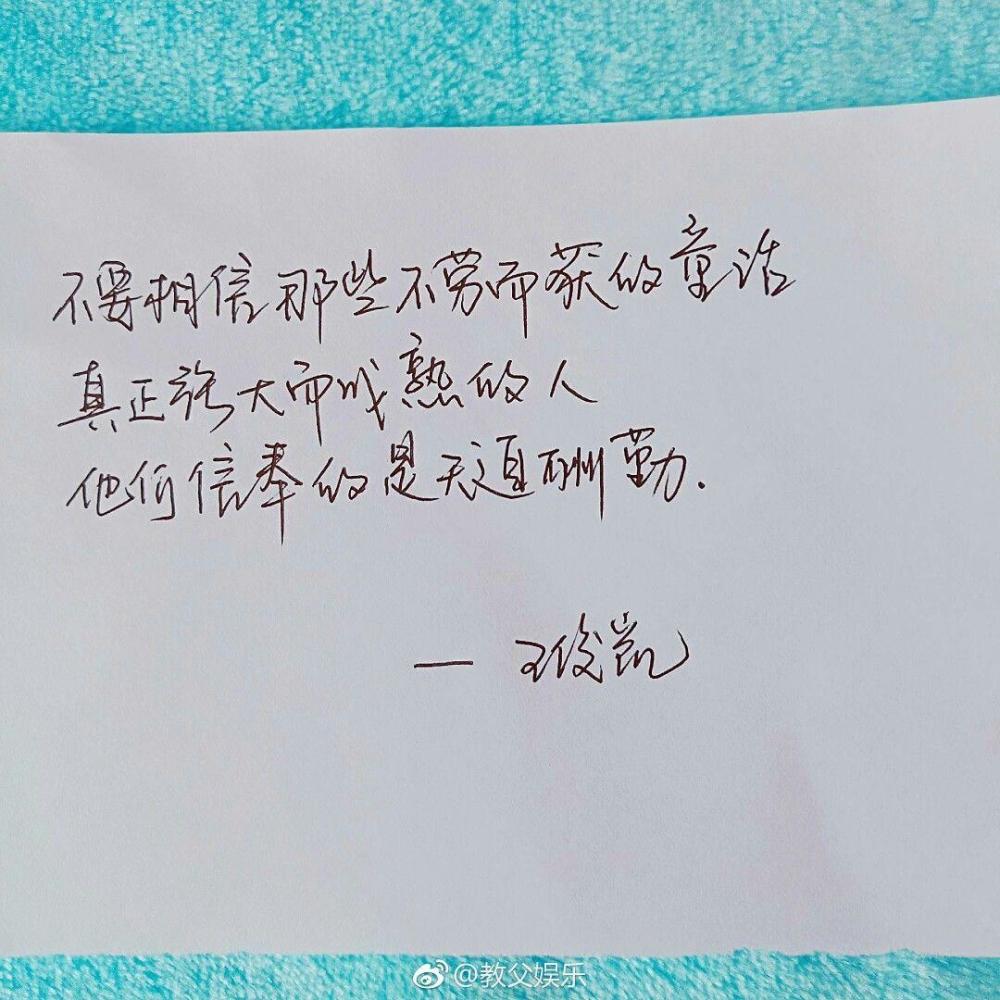 不要相信那些不劳而获的童话
真正强大而成熟的人
他们信奉的是天道酬勤.
— 王俊凯
@教父娱乐